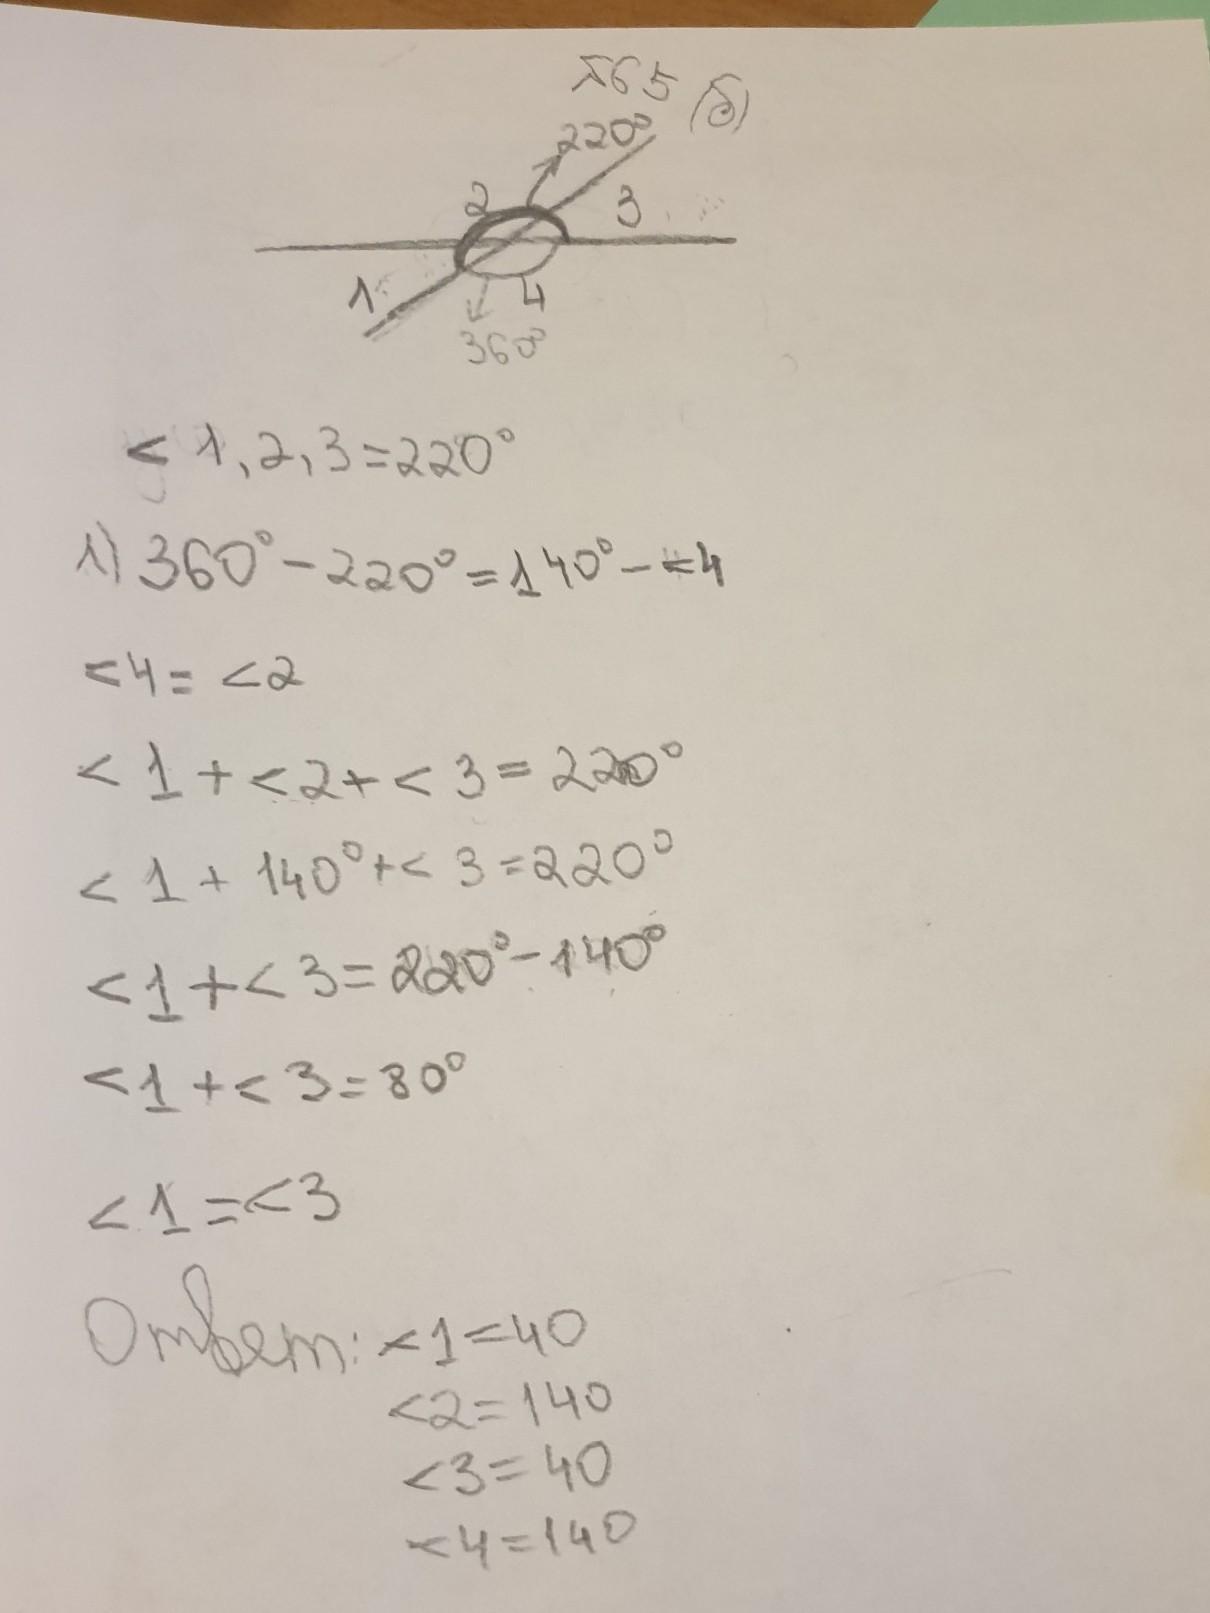 №65 (б)
220°
2
3
1
4
360°
< 1, 2, 3 = 220°
1) 360° - 220° = 140° - <4
<4 = <2
< 1 + <2 + < 3 = 220°
< 1 + 140° + < 3 = 220°
< 1 + < 3 = 220° - 140°
< 1 + < 3 = 80°
< 1 = <3
Ответ: <1 = 40
<2 = 140
<3 = 40
<4 = 140